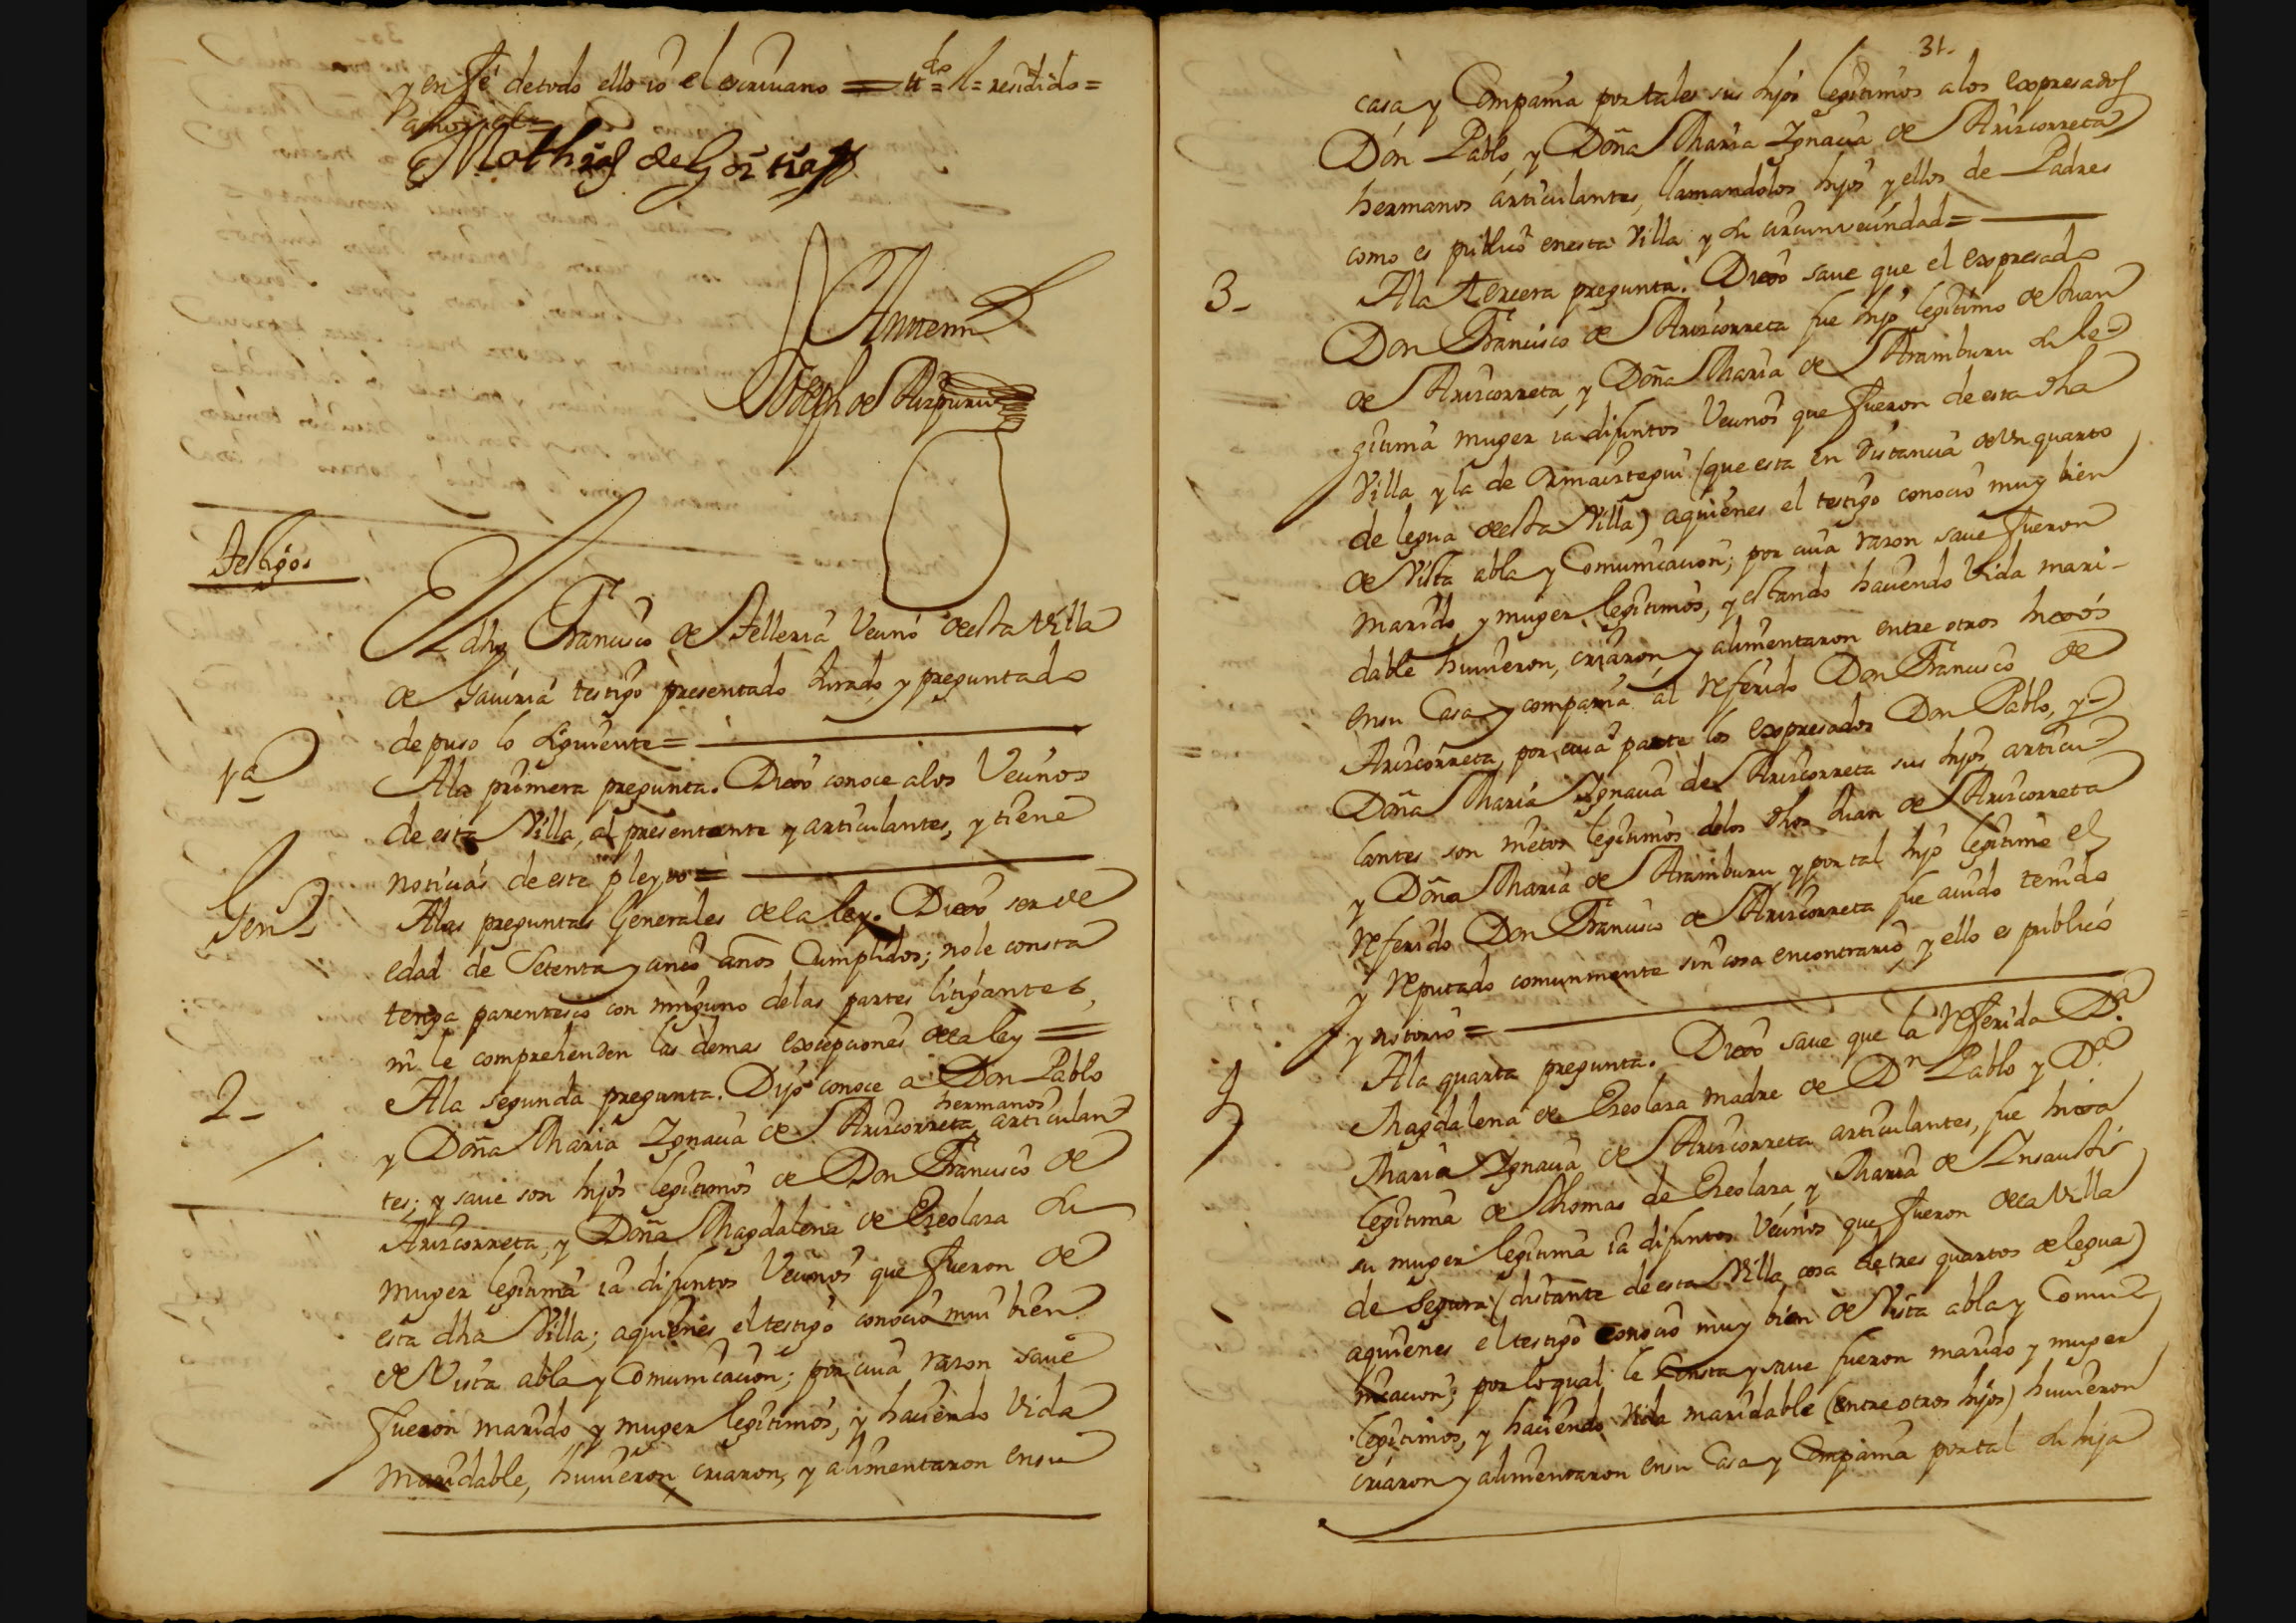 y en fé de todo ello io el escriuano = tdo = l = residido =
Mathias de Goitia
Antemi
Joseph de Aizpuru
Testigos
El dho Francisco de Telleria Vecino desta Villa
de Sauiria testigo presentado Jurado, y preguntado
depuso lo siguiente =
1a
Ala primera pregunta. Dixo conoce alos Vecinos
de esta Villa, al presentante y articulantes, y tiene
noticias de este pleyto =
Gen
Alas preguntas Generales dela ley. Dixo ser de
edad de Setenta y cinco años Cumplidos; no le consta
tenga parentesco con ninguno delas partes litigantes,
ni le comprehenden las demas excepciones dela ley =
2
Ala segunda pregunta. Dijo conoce a Don Pablo
hermanos
y Doña Maria Ignacia de Ariscorreta articulan
tes; y saue son hijos legitimos de Don Francisco de
Ariscorreta, y Doña Magdalena de Ereolaza su
muger legitima ia difuntos Vecinos que fueron de
esta dha Villa; aquienes el testigo conocio mui bien
de Vista abla y Comunicacion; por cuia razon saue
fueron marido y muger legitimos, y haciendo Vida
maridable, huuieron, criaron, y alimentaron ensu
31
casa y Compania por tales sus hijos legitimos alos expresados
Don Pablo, y Doña Maria Ignacia de Ariscorreta
hermanos articulantes, llamandolos hijos y ellos de Padres
como es publico enesta Villa y su circunvecindad =
3
Ala tercera pregunta. Dixo saue que el expresado
Don Francisco de Ariscorreta fue hijo legitimo de Juan
de Ariscorreta, y Doña Maria de Aramburu su le
gitima muger ia difuntos Vecinos que fueron de esta dha
Villa y la de Ormaiztegui (que esta en distancia de Un quarto
de legua desta Villa) aquienes el testigo conocio muy bien
de Vista abla y Comunicacion; por cuia razon saue fueron
marido y muger legitimos, y estando haciendo Vida mari-
dable huuieron, criaron, y alimentaron entre otros hixos
ensu Casa y compania al referido Don Francisco de
Ariscorreta, por cuia parte los expresados Don Pablo, y
Doña Maria Ignacia de Ariscorreta sus hijos articu
lantes son nietos legitimos delos dhos Juan de Ariscorreta
y Doña Maria de Aramburu y por tal hijo legitimo el
referido Don Francisco de Ariscorreta fue auido tenido
y reputado comunmente sin cosa encontrario, y ello es publico
y notorio =
4
Ala quarta pregunta. Dixo saue que la referida Da
Magdalena de Ereolaza madre de Dn Pablo y Da
Maria Ignacia de Ariscorreta articulantes, fue hixa
legitima de Thomas de Ereolaza y Maria de Insausti
su muger legitima ia difuntos Vecinos que fueron dela Villa
de Segura (distante de esta Villa cosa de tres quartos de legua)
aquienes el testigo conocio muy bien de Vista abla y Comu
nicacion; por loqual le Consta y saue fueron marido y muger
legitimos, y haciendo Vida maridable (entre otros hijos) huuieron
criaron y alimentaron ensu Casa y Compania por tal su hija